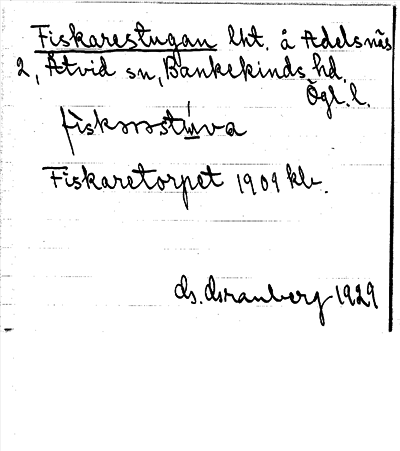 Fiskarestugan lht. å Adelsnäs
2, Åtvid sn, Bankekinds hd.
Ögl. l.
Fiskaretorpet 1909 kb.
1929